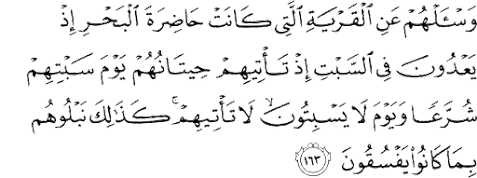 وَسْـَٔلْهُمْ عَنِ ٱلْقَرْيَةِ ٱلَّتِى كَانَتْ حَاضِرَةَ ٱلْبَحْرِ إِذْ
يَعْدُونَ فِى ٱلسَّبْتِ إِذْ تَأْتِيهِمْ حِيتَانُهُمْ يَوْمَ سَبْتِهِمْ
شُرَّعًا وَيَوْمَ لَا يَسْبِتُونَ ۙ لَا تَأْتِيهِمْ ۚ كَذَٰلِكَ نَبْلُوهُم
بِمَا كَانُوا۟ يَفْسُقُونَ ﴿١٦٣﴾